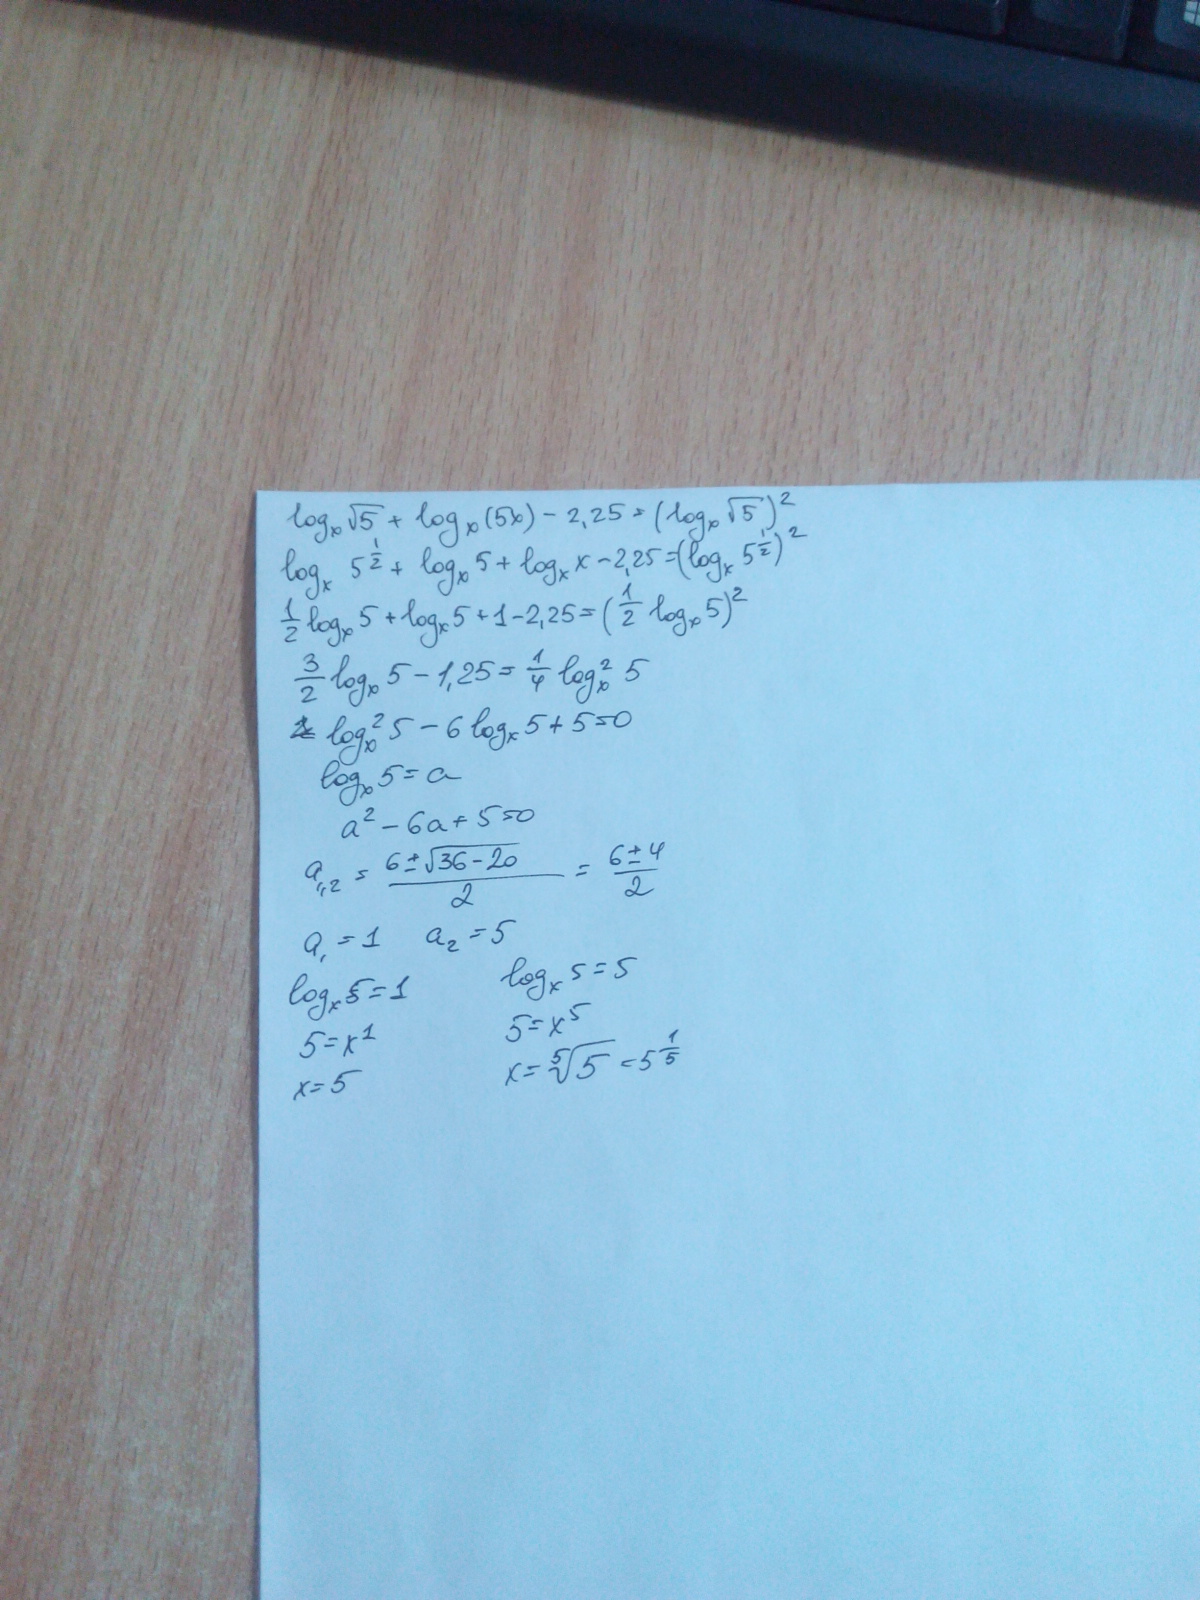 logₓ√5 + logₓ(5x) − 2,25 = (logₓ√5)²
logₓ 5^(1/2) + logₓ 5 + logₓ x − 2,25 = (logₓ 5^(1/2))²
1/2 logₓ 5 + logₓ 5 + 1 − 2,25 = (1/2 logₓ 5)²
3/2 logₓ 5 − 1,25 = 1/4 logₓ² 5
logₓ² 5 − 6 logₓ 5 + 5 = 0
logₓ 5 = a
a² − 6a + 5 = 0
a₁,₂ = (6 ± √(36 − 20))/2 = (6 ± 4)/2
a₁ = 1 a₂ = 5
logₓ 5 = 1 logₓ 5 = 5
5 = x¹ 5 = x⁵
x = 5 x = ⁵√5 = 5^(1/5)